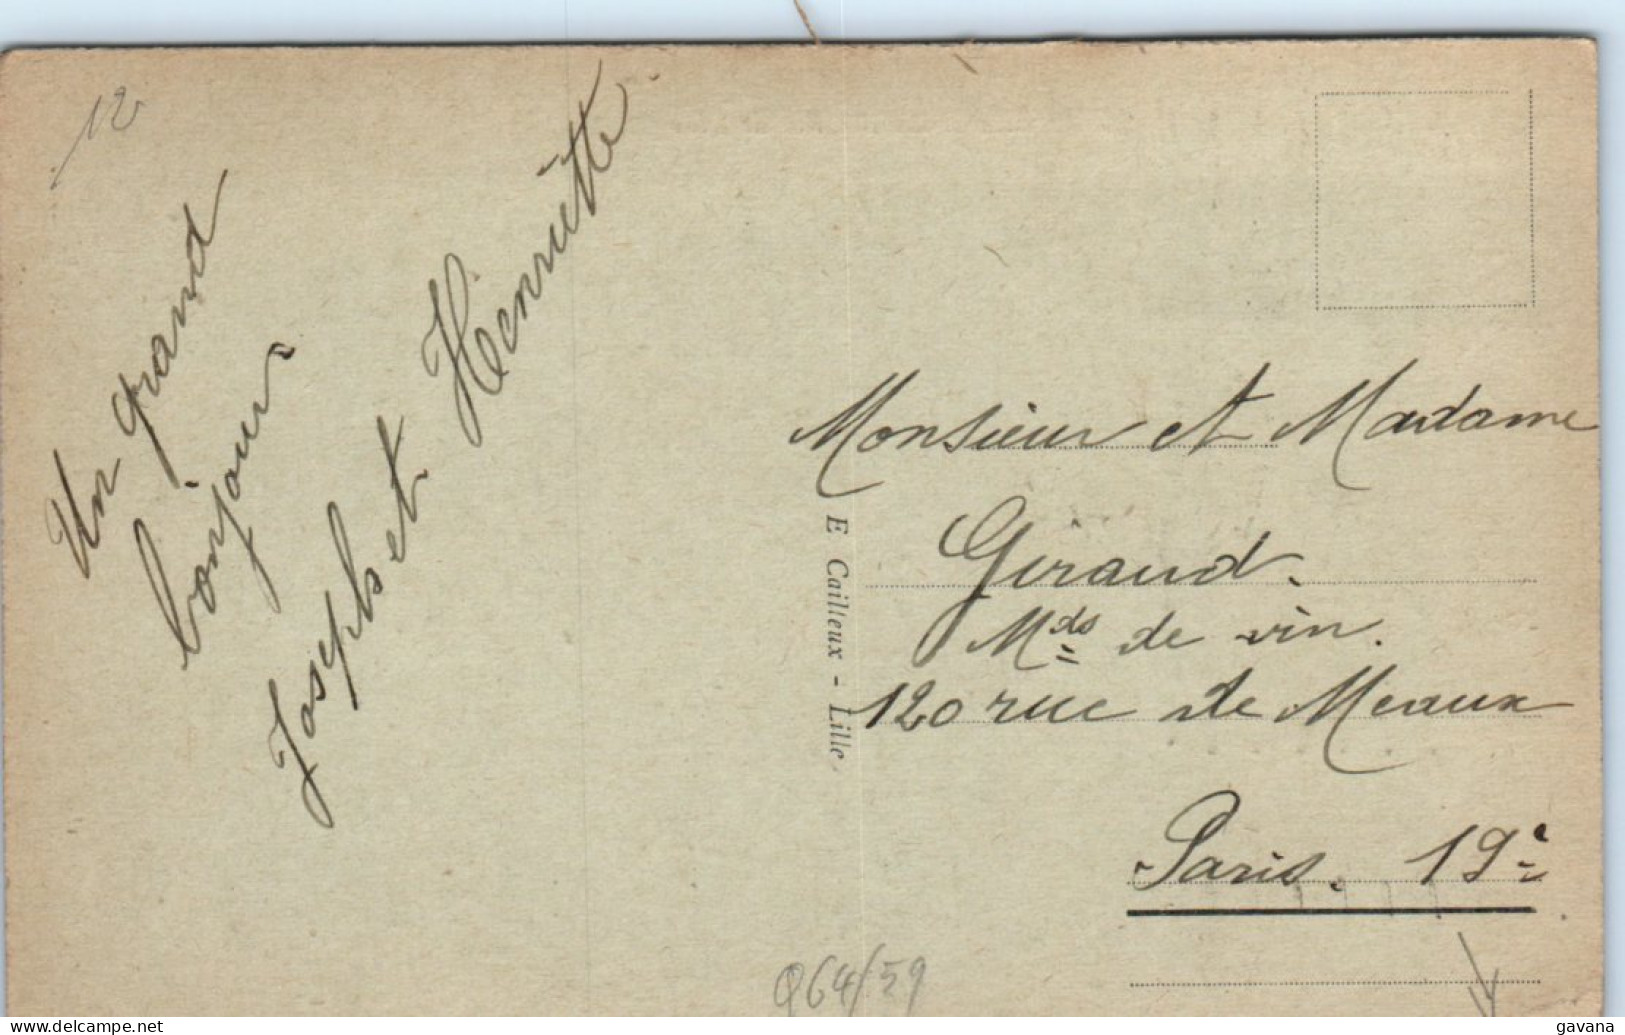 12
Un grand
bonjour
Joseph et Henriette.
E Cailleux - Lille
Monsieur et Madame
Giraud.
Mds de vin.
120 rue de Meaux
Paris. 19e
Q64/59
delcampe.net
gavana